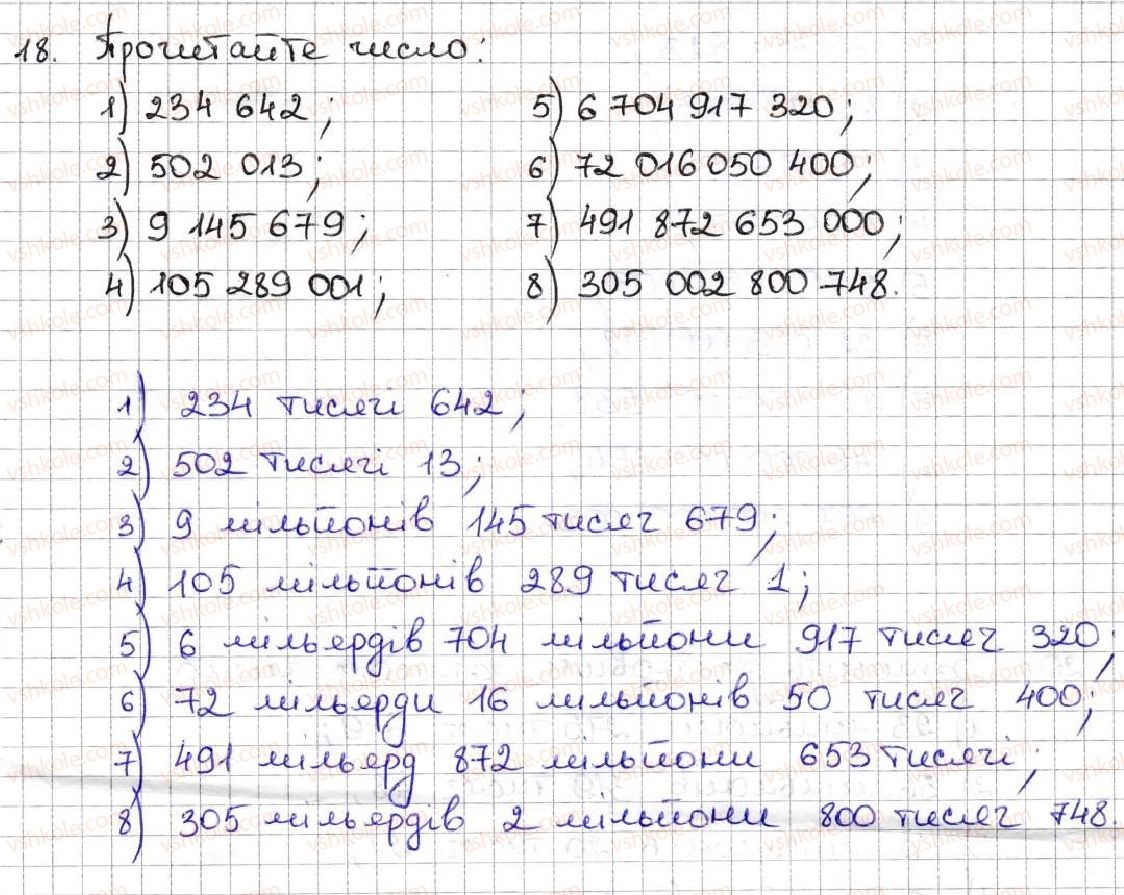 18. Прочитайте число:
1) 234 642;
2) 502 013;
3) 9 145 679;
4) 105 289 001;
5) 6 704 917 320;
6) 72 016 050 400;
7) 491 872 653 000;
8) 305 002 800 748.
1) 234 тисячі 642;
2) 502 тисячі 13;
3) 9 мільйонів 145 тисяч 679;
4) 105 мільйонів 289 тисяч 1;
5) 6 мільярдів 704 мільйони 917 тисяч 320;
6) 72 мільярди 16 мільйонів 50 тисяч 400;
7) 491 мільярд 872 мільйони 653 тисячі;
8) 305 мільярдів 2 мільйони 800 тисяч 748.
vshkole.com